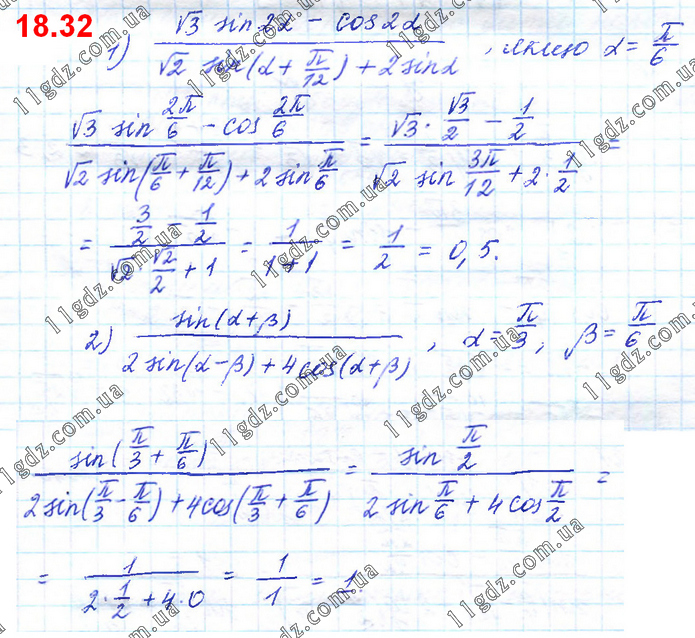 18.32
1) (√3 sin 2α − cos 2α) / (√2 sin(α + π/12) + 2 sin α), якщо α = π/6
(√3 sin 2π/6 − cos 2π/6) / (√2 sin(π/6 + π/12) + 2 sin π/6) = (√3 · √3/2 − 1/2) / (√2 sin 3π/12 + 2 · 1/2) =
= (3/2 − 1/2) / (√2 · √2/2 + 1) = 1/(1+1) = 1/2 = 0,5.
2) sin(α+β) / (2 sin(α−β) + 4 cos(α+β)), α = π/3, β = π/6
sin(π/3 + π/6) / (2 sin(π/3 − π/6) + 4 cos(π/3 + π/6)) = sin π/2 / (2 sin π/6 + 4 cos π/2) =
= 1 / (2 · 1/2 + 4 · 0) = 1/1 = 1.
11gdz.com.ua